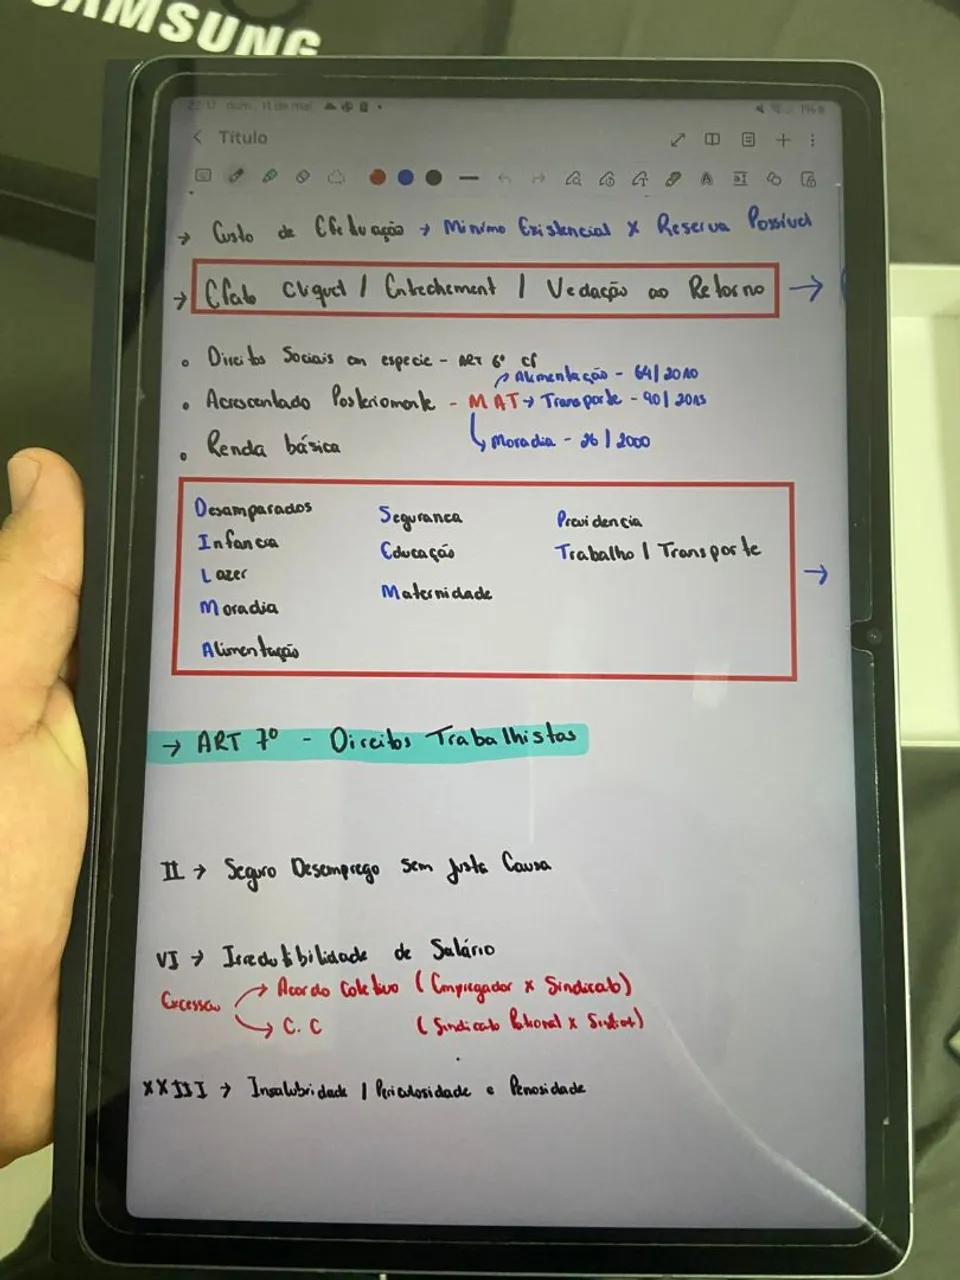 SAMSUNG
22:17 dom., 11 de mai
Título
→ Custo de Efetuação → Mínimo Existencial X Reserva Possível
→ Efab Cliquet / Entrechement / Vedação ao Retorno →
• Direitos Sociais em especie - ART 6º CF
Alimentação - 64/2010
• Acrescentado Posteriomente - MAT → Transporte - 90/2015
Moradia - 26/2000
• Renda básica
Desamparados Seguranca Previdencia
Infancia Educação Trabalho / Transporte
Lazer Maternidade
Moradia
Alimentação
→
→ ART 7º - Direitos Trabalhistas
II → Seguro Desemprego sem justa Causa
VI → Irredutibilidade de Salário
Excessão → Acordo Coletivo (Empregador x Sindicato)
→ C.C (Sindicato Patronal x
XXIII → Insalubridade / Periculosidade e Penosidade